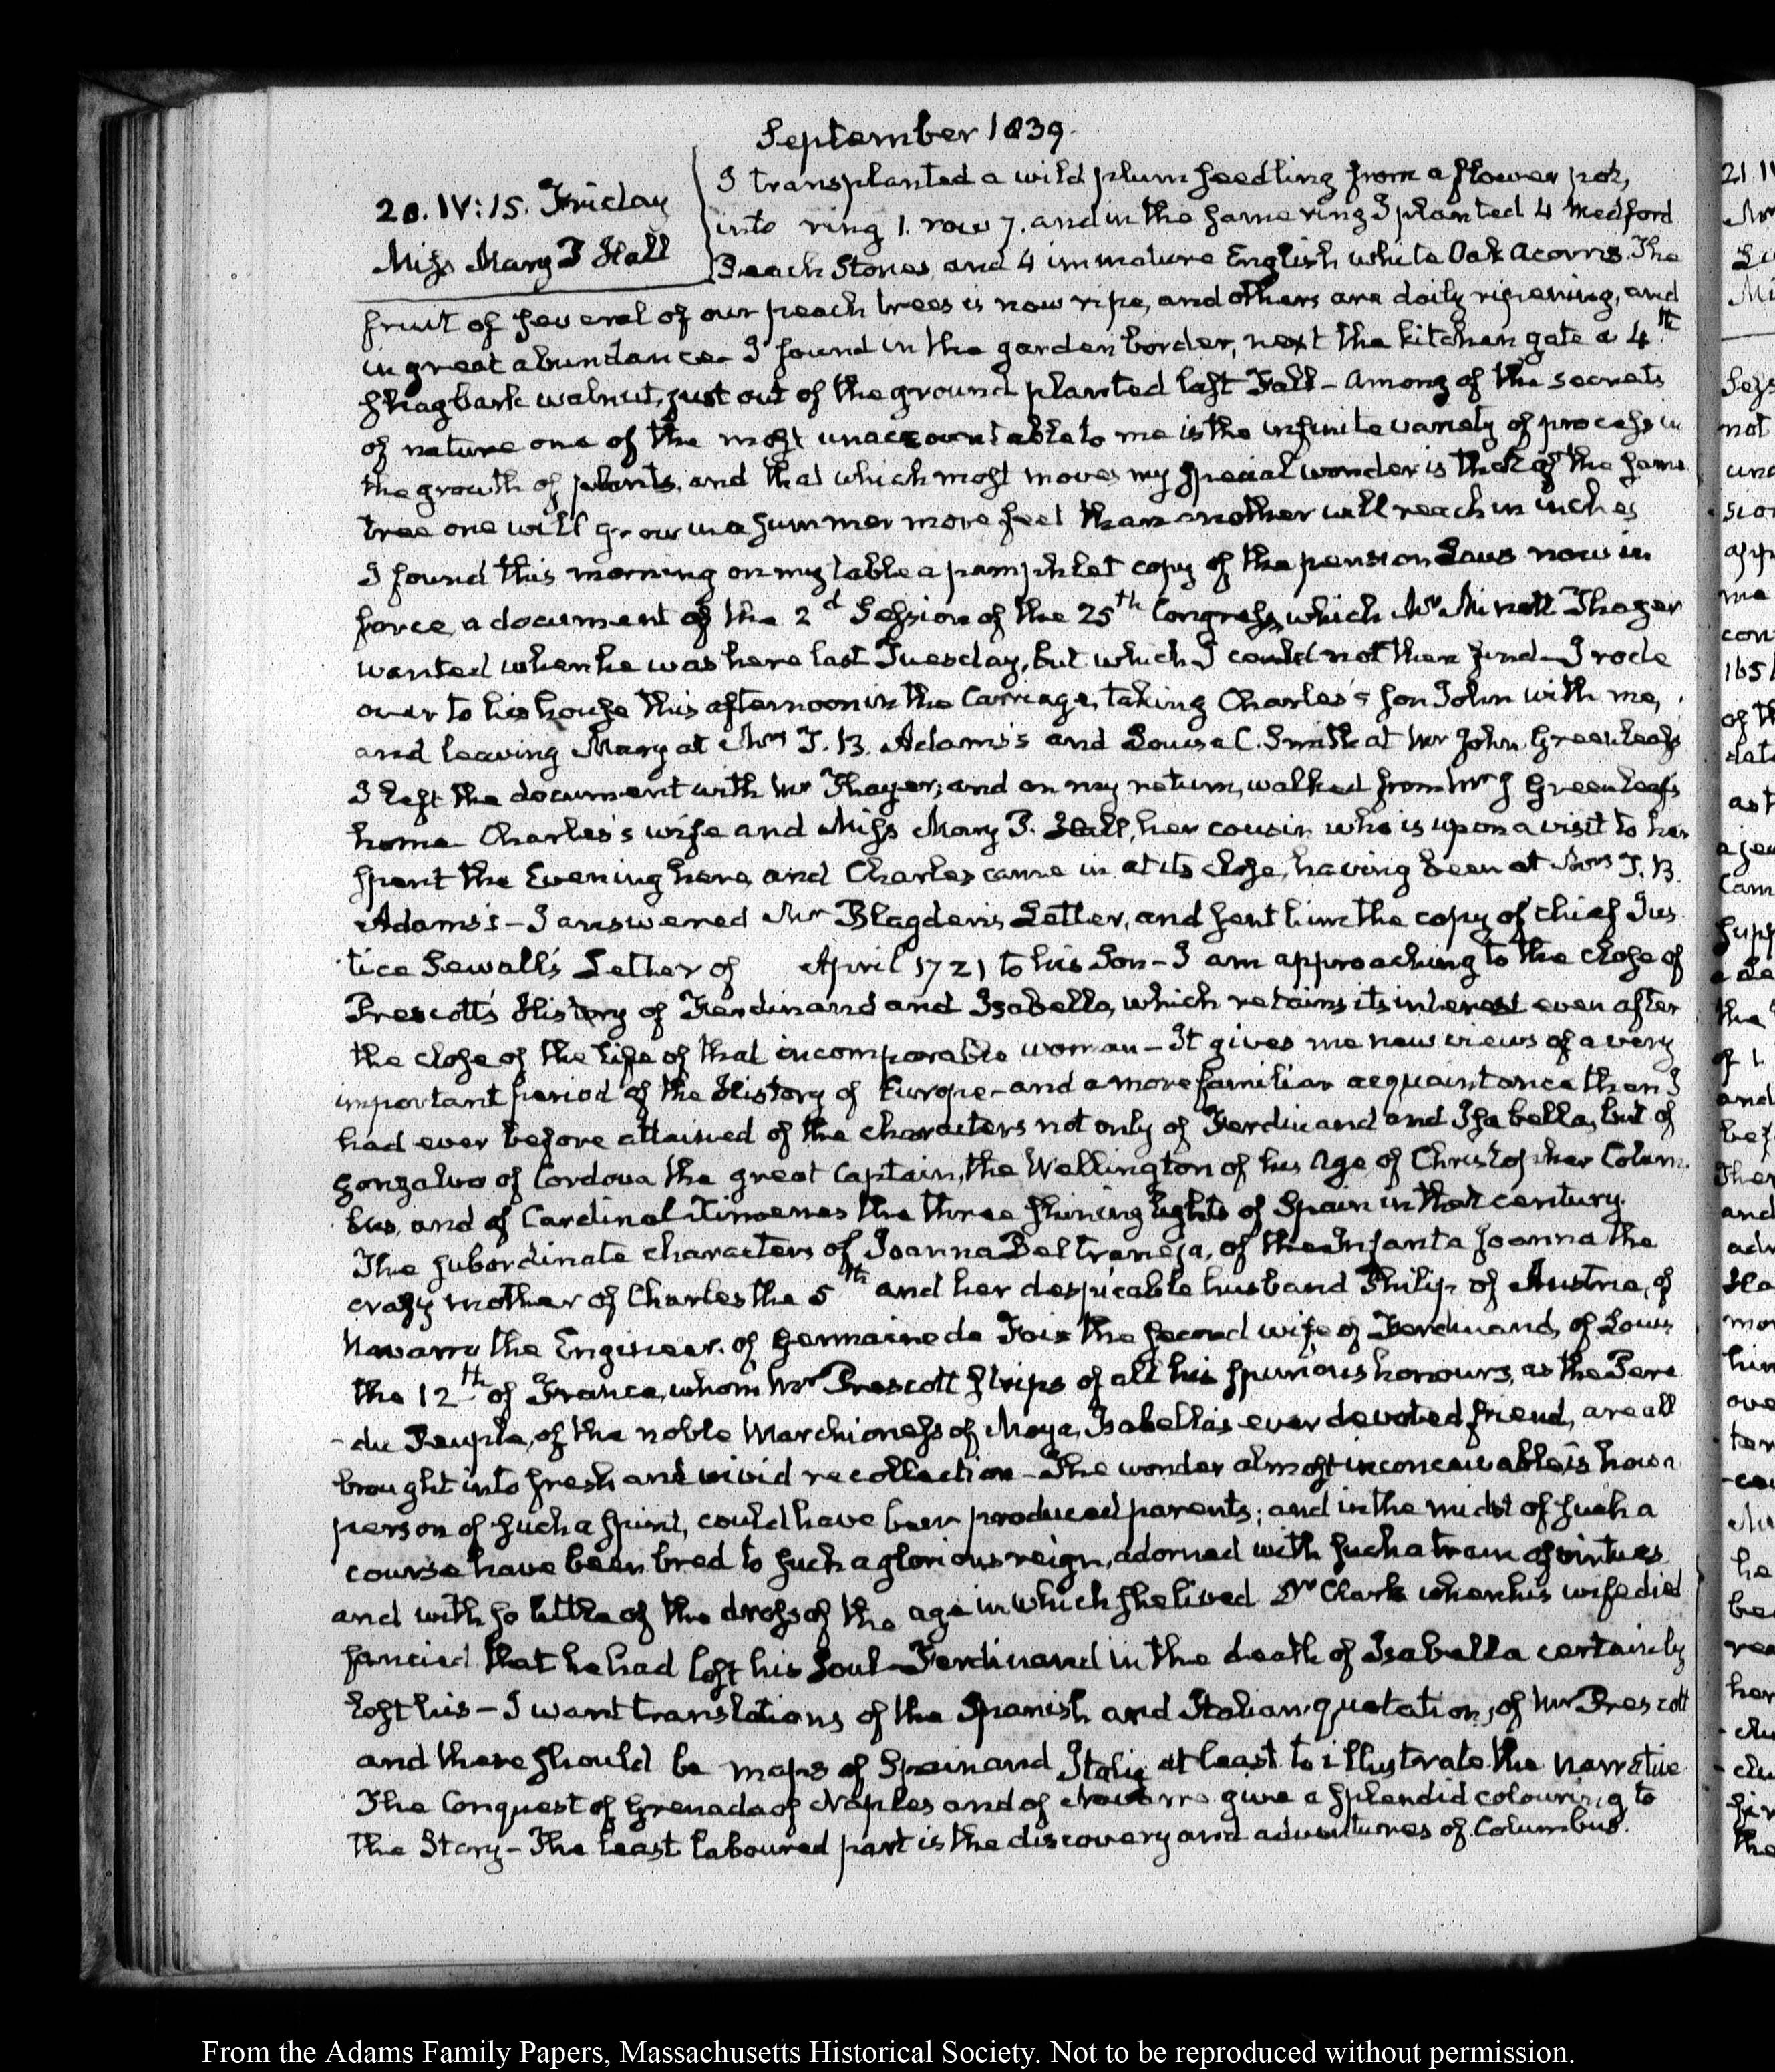 September 1839.
20. IV:15. Friday
Miss Mary P Hall
I transplanted a wild plum seedling from a flower pot,
into ring 1. row 7. and in the same ring I planted 4 Medford
Peach Stones, and 4 immature English white Oak Acorns. The
fruit of several of our peach trees is now ripe, and others are daily ripening, and
in great abundance. I found in the garden border, next the kitchen gate a 4th
shagbark walnut, just out of the ground planted last Fall – Among of the secrets
of nature one of the most unaccountable to me is the infinite variety of process in
the growth of plants, and that which most moves my special wonder is that of the same
tree one will grow in a summer more feet than another will reach in inches
I found this morning on my table a pamphlet copy of the pension Laws now in
force, a document of the 2d Session of the 25th Congress, which Mr Minott Thayer
wanted when he was here last Tuesday, but which I could not then find – I rode
over to his house this afternoon in the Carriage, taking Charles's son John with me,
and leaving Mary at Mrs T. B. Adams's and Louisa C. Smith at Mr John Greenleaf's
I left the document with Mr Thayer; and on my return, walked from Mr J Greenleaf's
home. Charles's wife and Miss Mary P. Hall, her cousin who is upon a visit to her
spent the Evening here, and Charles came in at its close, having been at Mrs T. B.
Adams's – I answered Mr Blagden's Letter, and sent him the copy of chief Jus
tice Sewall's Letter of April 1721 to his Son – I am approaching to the close of
Prescott's History of Ferdinand and Isabella, which retains its interest even after
the close of the life of that incomparable woman – It gives me new views of a very
important period of the History of Europe – and a more familiar acquaintance than I
had ever before attained of the characters not only of Ferdinand and Isabella, but of
Gonzalvo of Cordova the great Captain, the Wellington of his Age of Christopher Colum-
bus, and of Cardinal Ximenes the three shining lights of Spain in that century.
The subordinate characters of Joanna Beltraneja, of the Infanta Joanna the
crazy mother of Charles the 5th and her despicable husband Philip of Austria, of
Navarro the Engineer. of Germaine de Foix the second wife of Ferdinand, of Louis
the 12th of France, whom Mr Prescott strips of all his spurious honours, as the Pere
du Peuple, of the noble Marchioness of Moya, Isabella's ever devoted friend, are all
brought into fresh and vivid recollection – The wonder almost inconceivable is how a
person of such a spirit, could have been produced parents; and in the midst of such a
course have been bred to such a glorious reign, adorned with such a train of virtues
and with so little of the dross of the age in which she lived Dr Clark when his wife died
fancied that he had lost his Soul – Ferdinand in the death of Isabella certainly
lost his – I want translations of the Spanish and Italian quotations, of Mr Prescott
and there should be maps of Spain and Italy at least to illustrate the narrative
The Conquest of Grenada of Naples and of Navarre give a splendid colouring to
the Story – The least laboured part is the discovery and adventures of Columbus.
From the Adams Family Papers, Massachusetts Historical Society. Not to be reproduced without permission.